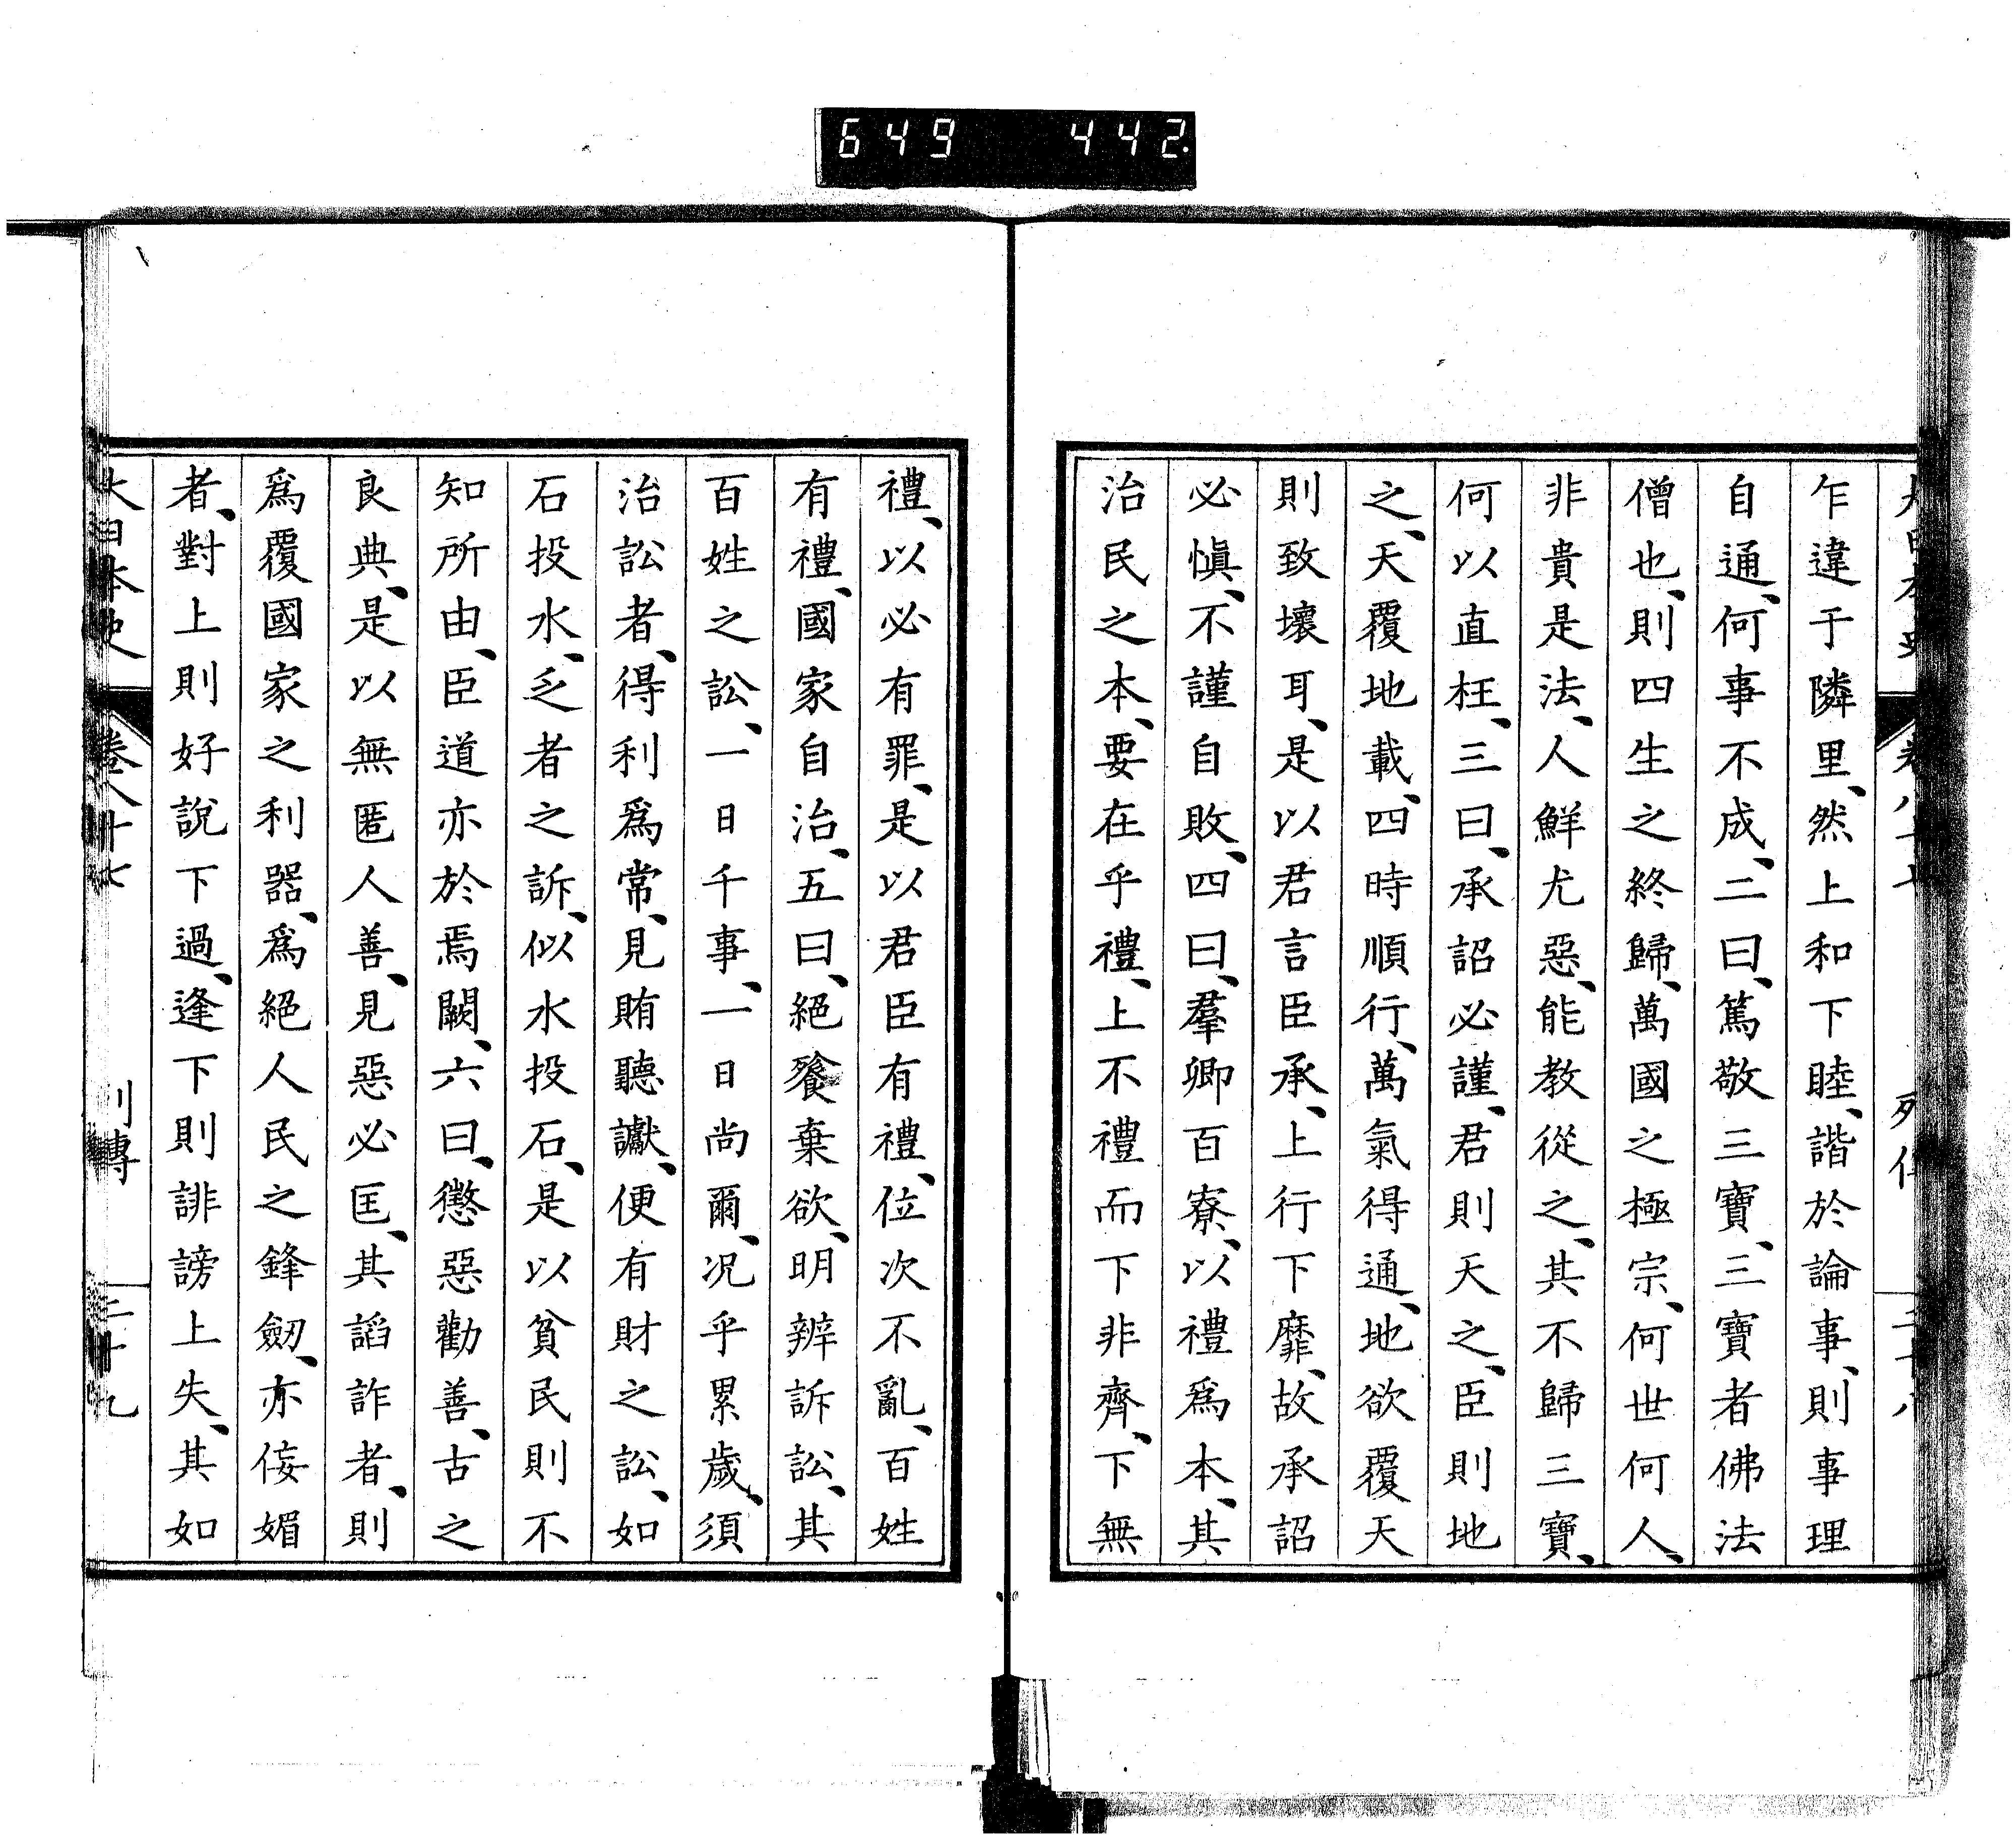 649 442.
大日本史 卷八十七 列傳 二十八
乍違于隣里、然上和下睦、諧於論事、則事理
自通、何事不成、二曰、篤敬三寶、三寶者佛法
僧也、則四生之終歸、萬國之極宗、何世何人、
非貴是法、人鮮尤惡、能教從之、其不歸三寶、
何以直枉、三曰、承詔必謹、君則天之、臣則地
之、天覆地載、四時順行、萬氣得通、地欲覆天
則致壞耳、是以君言臣承、上行下靡、故承詔
必愼、不謹自敗、四曰、羣卿百寮、以禮爲本、其
治民之本、要在乎禮、上不禮而下非齊、下無
禮、以必有罪、是以君臣有禮、位次不亂、百姓
有禮、國家自治、五曰、絕餮棄欲、明辨訴訟、其
百姓之訟、一日千事、一日尚爾、况乎累歲、須
治訟者、得利爲常、見賄聽讞、便有財之訟、如
石投水、乏者之訴、似水投石、是以貧民則不
知所由、臣道亦於焉闕、六曰、懲惡勸善、古之
良典、是以無匿人善、見惡必匡、其諂詐者、則
爲覆國家之利器、爲絕人民之鋒劒、亦侫媚
者、對上則好說下過、逢下則誹謗上失、其如
大日本史 卷八十七 列傳 二十九